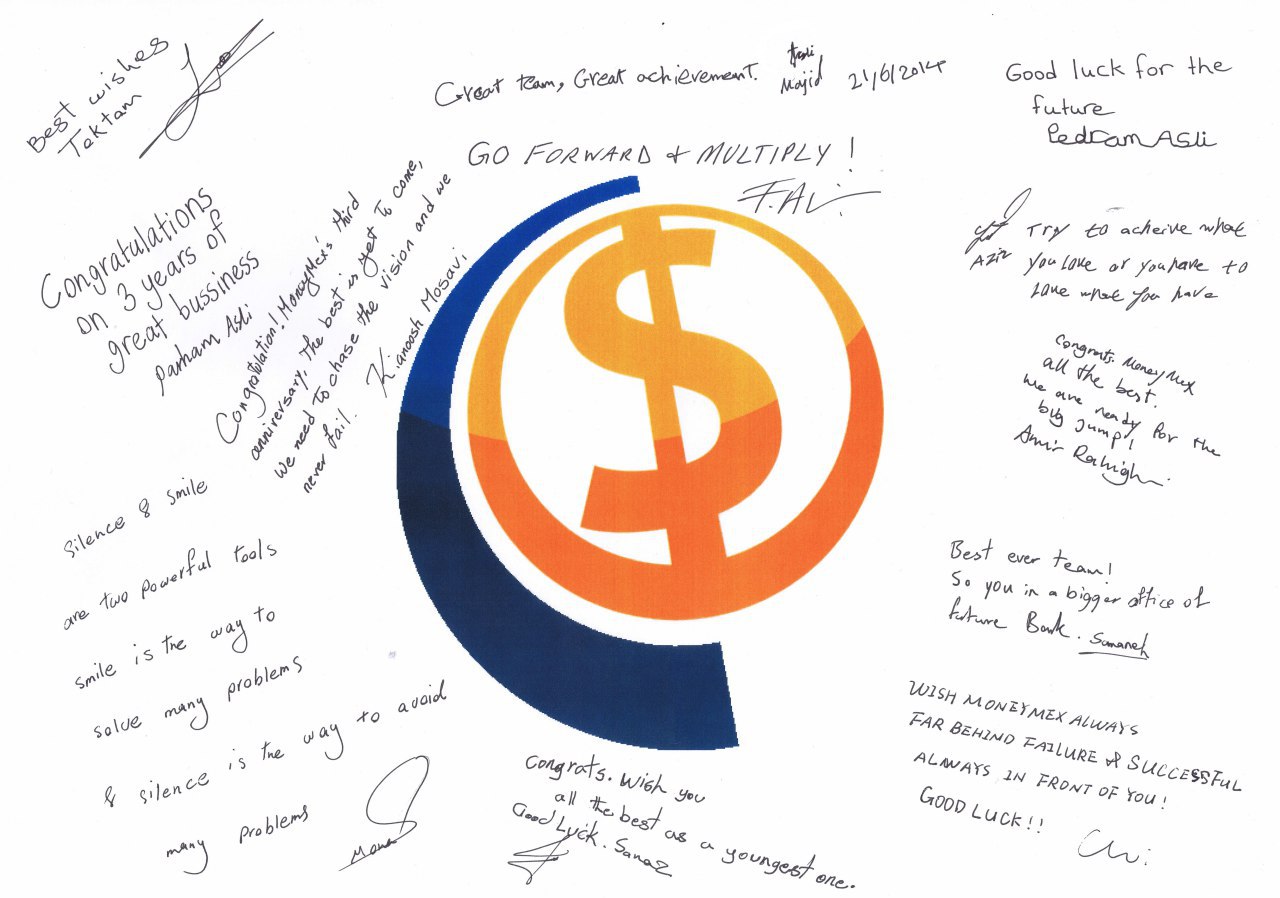 Best wishes
Toktam
Great team, Great achievement.
Majid 21/6/2014
Good luck for the
future
Pedram Asli
GO FORWARD & MULTIPLY !
Congratulations
on 3 years of
great bussiness
Parham Asli
Congratulation! MoneyMex's third
anniversary. The best is yet to come,
we need to chase the vision and we
never fail. Kianoosh Mosavi
Aziz
Try to acheive what
you love or you have to
love what you have
Congrats. Money Mex
all the best.
we are ready for the
big jump!
Amir Rahighi
silence & smile
are two powerful tools
smile is the way to
solve many problems
& silence is the way to avoid
many problems
Mona
Best ever team!
So you in a bigger office of
future Bank. Samaneh
WISH MONEYMEX ALWAYS
FAR BEHIND FAILURE & SUCCESSFUL
ALWAYS IN FRONT OF YOU!
GOOD LUCK!!
Congrats. Wish you
all the best as a youngest one.
Good Luck. Sanaz